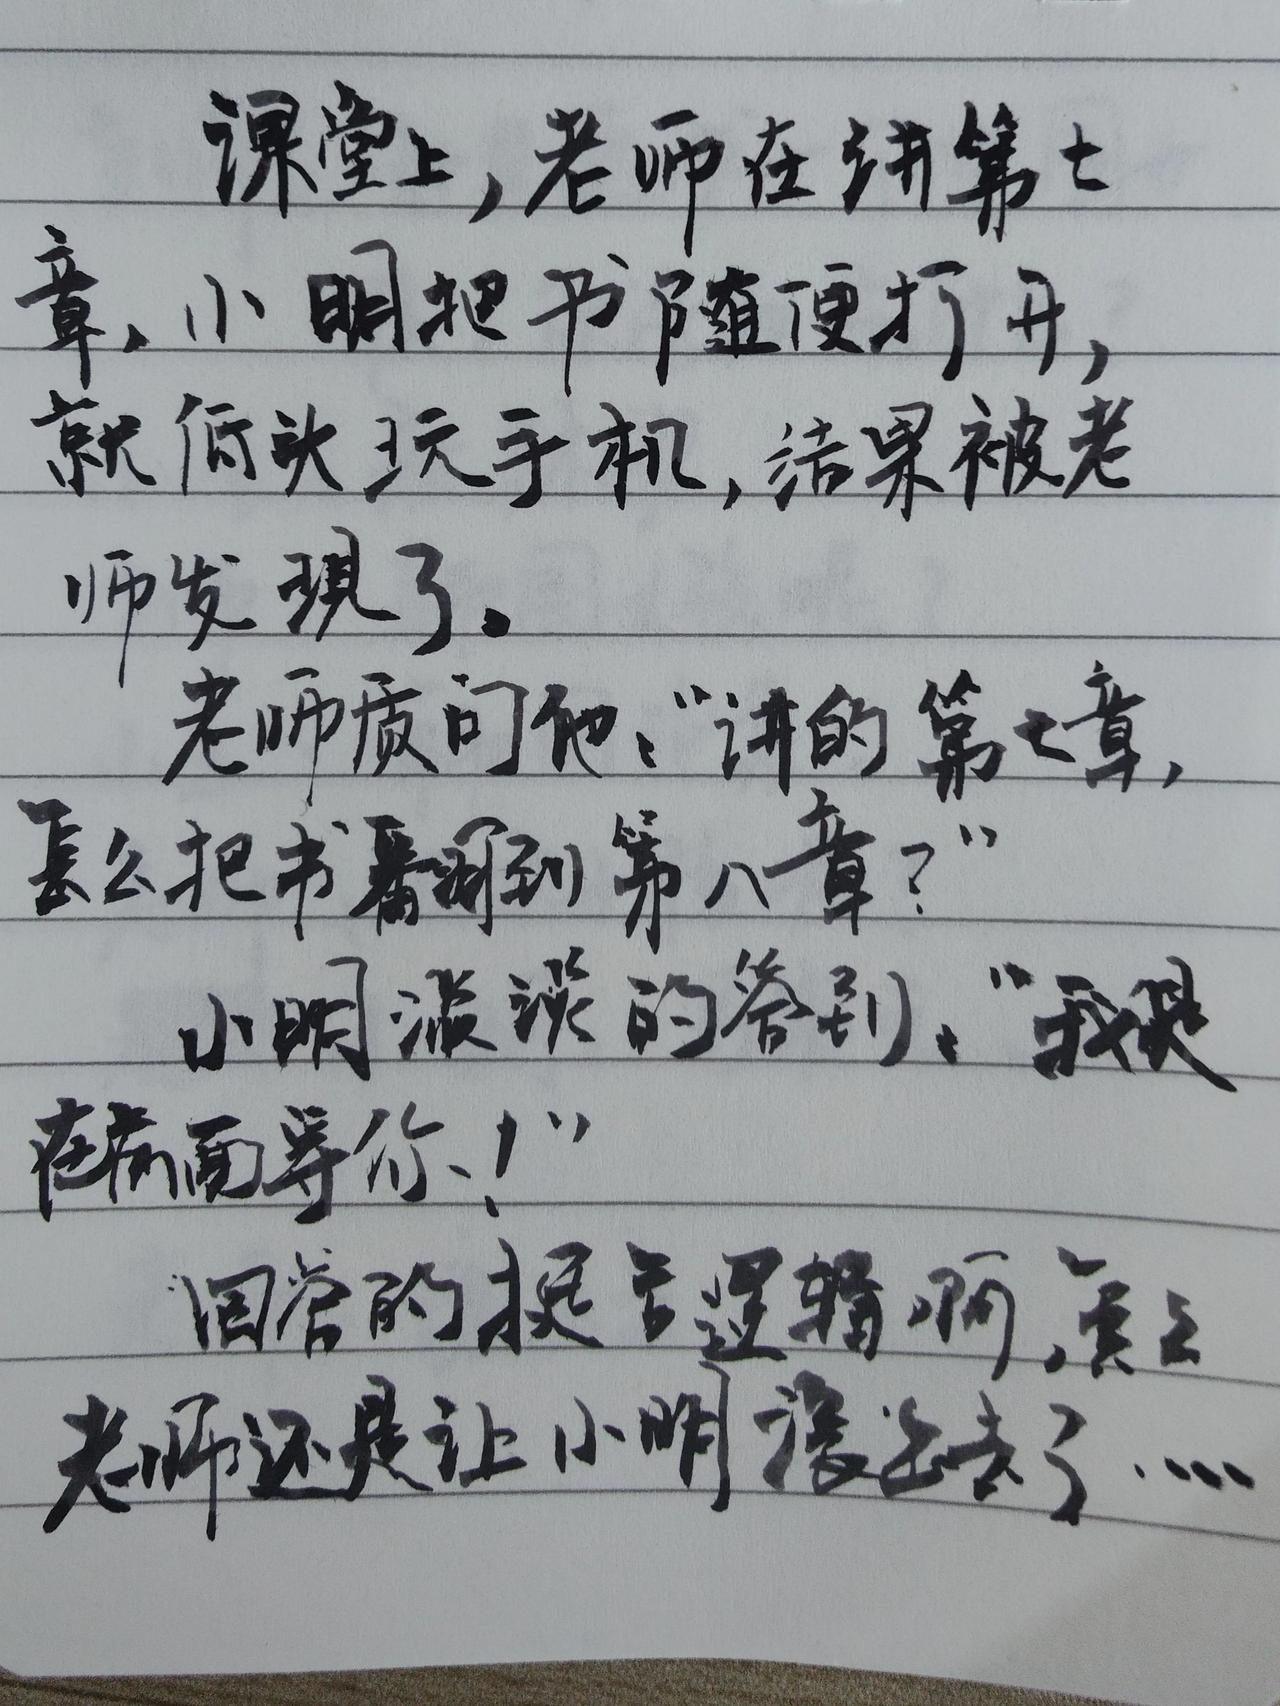 课堂上,老师在讲第七
章,小明把书随便打开,
就低头玩手机,结果被老
师发现了。
老师质问他:“讲的第七章,
怎么把书翻到第八章?”
小明淡淡的答到:“我是
在前面等你!”
回答的挺合逻辑啊,
老师还是让小明滚出去了....